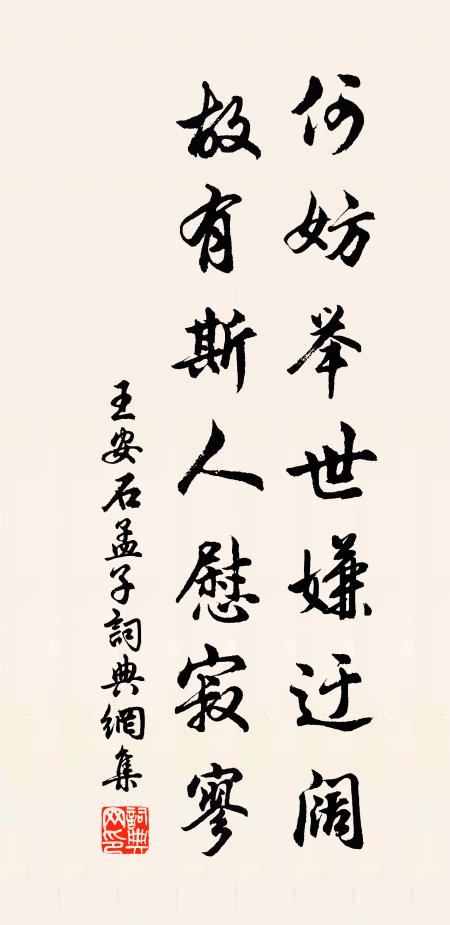 何妨举世嫌迂阔
故有斯人慰寂寥
王安石孟子詞典網集
詞典网印